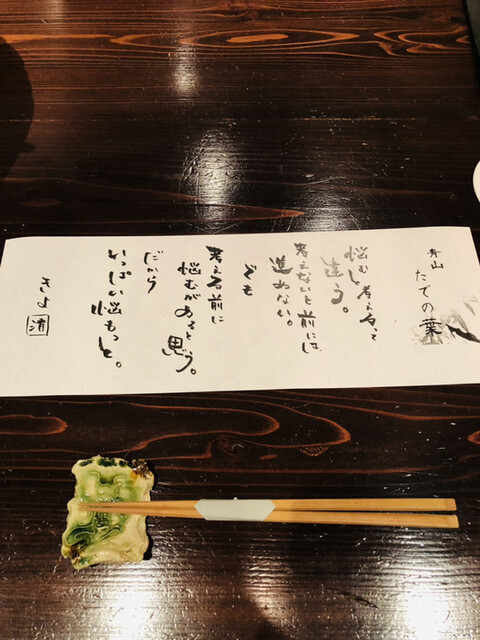 青山
たでの葉
悩むと考えるって
違う。
考えないと前には
進めない。
でも
考える前に
悩むがあると思う。
だから
いっぱい悩もっと。
きよ
清